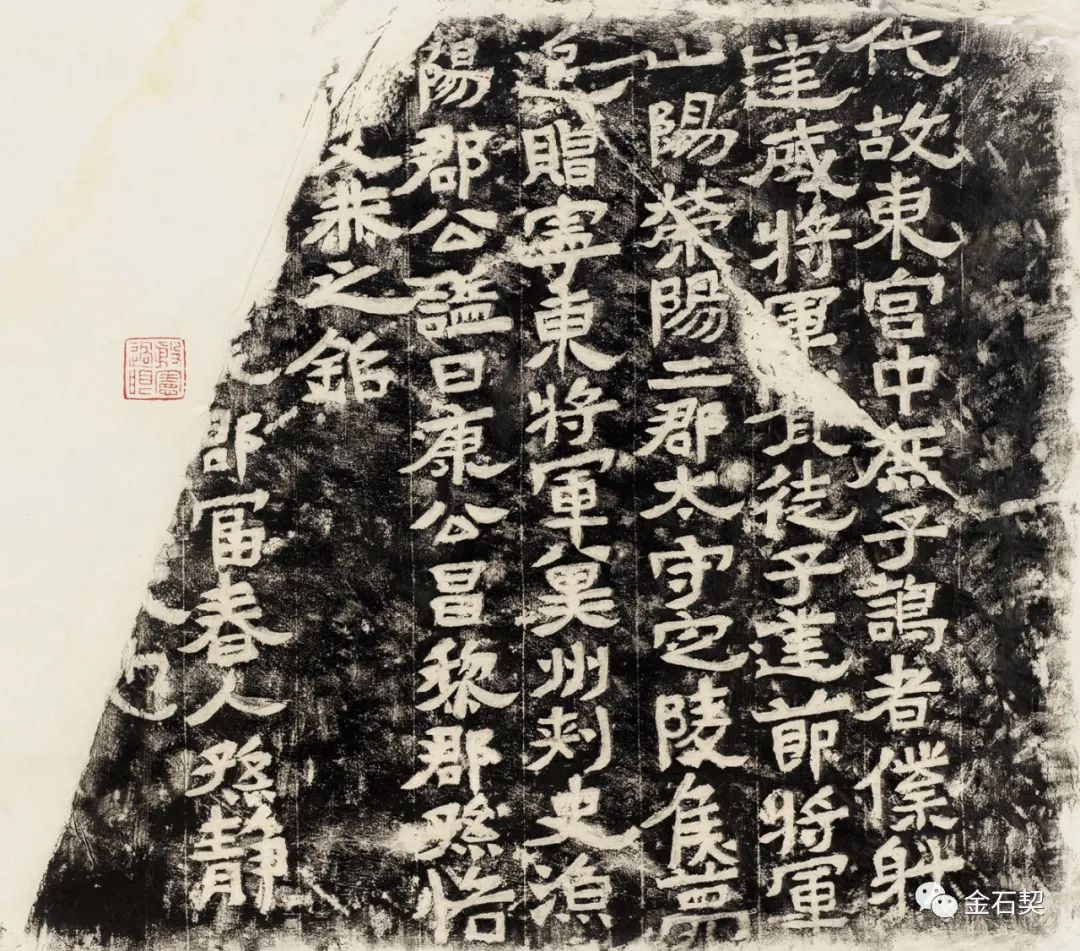 代故東宮中庶子謁者僕射
建威將軍徒子建節將軍
山陽榮陽二郡太守定陵侯薨
追贈寧東將軍冀州刺史漁
陽郡公謚曰康公昌黎郡孫恪
文恭之銘
郡富春人孫靜
殷憲過眼
金石契